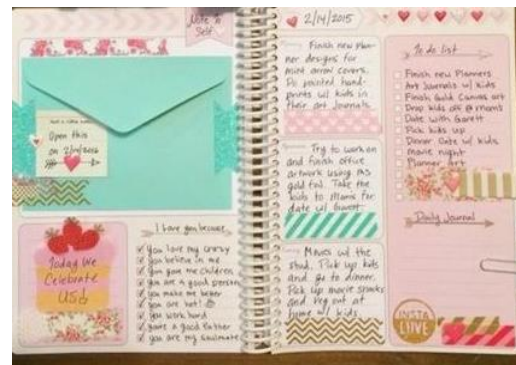 Note to
Self
Just a little note
Open this
on 2/14/2016
Today We
Celebrate
US
I love you because
you love my crazy
you believe in me
you gave me children
you are a good person
you make me better
you are hot!
you work hard
you are a good father
you are my soulmate
2/14/2015
Morning
Finish new plan-
ner designs for
mint arrow covers.
Do painted hand-
prints w/ kids in
their art Journals.
Afternoon
Try to work on
and finish office
artwork using MS
gold foil. Take the
kids to Moms for
date w/ Garett
Evening
Movies w/ the
stud. Pick up kids
and go to dinner.
Pick up movie snacks
and veg out at
home w/ kids.
To do list
Finish new Planners
Art Journals w/ kids
Finish Gold Canvas art
Drop kids off @ moms
Date with Garett
Pick kids up
Dinner Date w/ kids
movie night
Planner art
Daily Journal
INSTA
LOVE